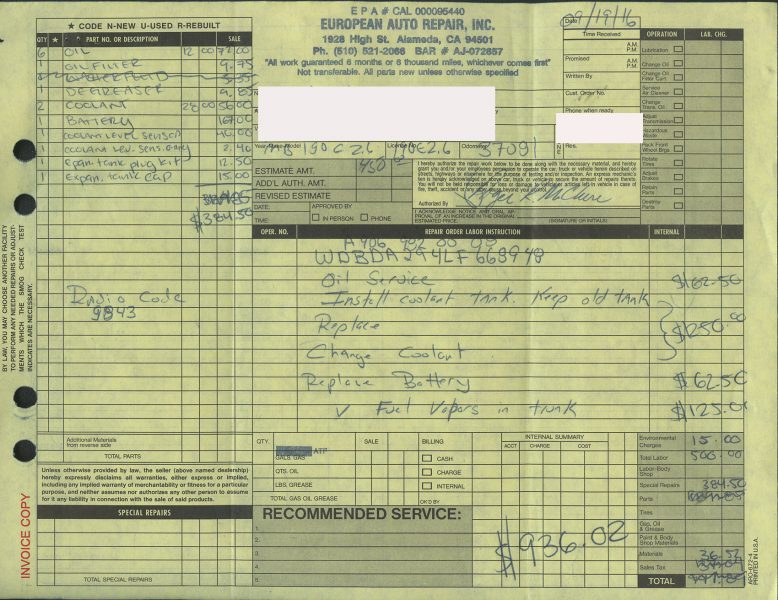 E P A # CAL 000095440
EUROPEAN AUTO REPAIR, INC.
1928 High St. Alameda, CA 94501
Ph. (510) 521-2066 BAR # AJ-072657
"All work guaranteed 6 months or 6 thousand miles, whichever comes first"
Not transferable. All parts new unless otherwise specified
★ CODE N-NEW U-USED R-REBUILT
QTY ★ PART NO. OR DESCRIPTION SALE
6 OIL 12 00 72.00
1 OIL FILTER 9.75
1 DEGREASER 9.85
2 COOLANT 28 00 56.00
1 BATTERY 167.00
1 COOLANT LEVEL SENSOR 40.00
1 COOLANT LEV. SENS. 2.40
1 Expan. tank plug kit 12.50
1 Expan. tank cap 15.00
$384.50
Radio Code
9843
Additional Materials
from reverse side
TOTAL PARTS
Unless otherwise provided by law, the seller (above named dealership)
hereby expressly disclaims all warranties, either express or implied,
including any implied warranty of merchantability or fitness for a particular
purpose, and neither assumes nor authorizes any other person to assume
for it any liability in connection with the sale of said products.
SPECIAL REPAIRS
TOTAL SPECIAL REPAIRS
BY LAW, YOU MAY CHOOSE ANOTHER FACILITY
TO PERFORM ANY NEEDED REPAIRS OR ADJUST-
MENTS WHICH THE SMOG CHECK TEST
INDICATES ARE NECESSARY.
INVOICE COPY
Date 09/19/16
Time Received
A.M.
P.M.
Promised
A.M.
P.M.
Written By
Cust. Order No.
Phone when ready
Res.
Year-Make-Model MB 190E 2.6 License No. Odometer
ESTIMATE AMT. 450
ADD'L AUTH. AMT.
REVISED ESTIMATE
DATE: APPROVED BY
TIME: IN PERSON PHONE
I hereby authorize the repair work below to be done along with the necessary material, and hereby
grant you and/or your employees permission to operate the car, truck or vehicle herein described on
streets, highways or elsewhere for the purpose of testing and/or inspection. An express mechanic's
lien is hereby acknowledged on above car, truck or vehicle to secure the amount of repairs thereto.
You will not be held responsible for loss or damage to vehicle or articles left in vehicle in case of
fire, theft, accident or any other cause beyond your control.
Authorized By
I ACKNOWLEDGE NOTICE AND ORAL AP-
PROVAL OF AN INCREASE IN THE ORIGINAL
ESTIMATED PRICE.
(SIGNATURE OR INITIALS)
OPERATION LAB. CHG.
Lubrication
Change Oil
Change Oil
Filter Cart.
Service
Air Cleaner
Change
Trans. Oil
Adjust
Transmission
Hazardous
Waste
Pack Front
Wheel Brgs.
Rotate
Tires
Adjust
Brakes
Retain
Parts
Destroy
Parts
OPER. NO. REPAIR ORDER LABOR INSTRUCTION INTERNAL
WDBDA294LF668948
Oil Service $162.50
Install coolant tank. Keep old tank
Replace $250.00
Change Coolant
Replace Battery $62.50
✓ Fuel Vapors in trunk $125.00
QTY. SALE BILLING INTERNAL SUMMARY
ACCT CHARGE COST
ATF
GALS. GAS CASH
QTS. OIL CHARGE
LBS. GREASE INTERNAL
TOTAL GAS OIL GREASE OK'D BY
RECOMMENDED SERVICE:
1.
2.
3.
4.
5.
$936.02
Environmental
Charges 15.00
Total Labor 500.00
Labor-Body
Shop
Special Repairs 384.50
Parts
Tires
Gas, Oil
& Grease
Paint & Body
Shop Materials
Materials 36.52
Sales Tax
TOTAL
APO-672-4
PRINTED IN U.S.A.